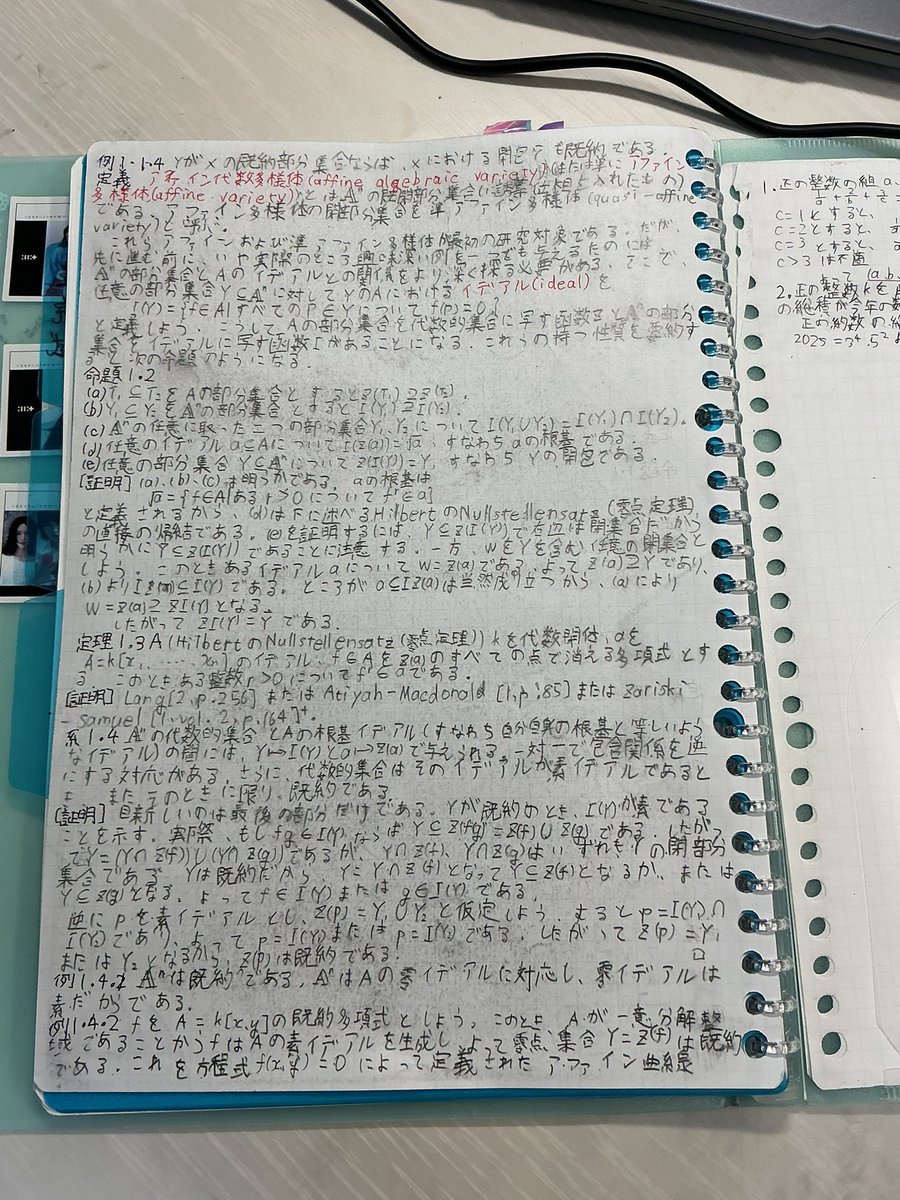 例1.1.4 YがXの既約部分集合ならば、Xにおける閉包Ȳも既約である.
定義 アフィン代数多様体(affine algebraic variety)(または単にアファイン
多様体(affine variety))とは𝔸ⁿの既約閉部分集合(に誘導位相を入れたもの)
である. アファイン多様体の開部分集合を準アファイン多様体(quasi-affine
variety)と呼ぶ.
これらアファインおよび準アファイン多様体が最初の研究対象である. だが、
先に進む前に、いや実際のところ興味深い例を一つでも与えるためには
𝔸ⁿの部分集合とAのイデアルとの関係をより深く探る必要がある. そこで、
任意の部分集合Y⊆𝔸ⁿに対してYのAにおけるイデアル(ideal)を
I(Y)={f∈A|すべてのP∈Yについてf(P)=0}
と定義しよう. こうしてAの部分集合を代数的集合に写す函数Zと𝔸ⁿの部分
集合をイデアルに写す函数Iがあることになる. これらの持つ性質を要約す
ると次の命題のようになる.
命題1.2
(a)T₁⊆T₂をAの部分集合とするとZ(T₁)⊇Z(T₂).
(b)Y₁⊆Y₂を𝔸ⁿの部分集合とするとI(Y₁)⊇I(Y₂).
(c)𝔸ⁿの任意に取った二つの部分集合Y₁,Y₂についてI(Y₁∪Y₂)=I(Y₁)∩I(Y₂).
(d)任意のイデアルa⊆AについてI(Z(a))=√a、すなわちaの根基である.
(e)任意の部分集合Y⊆𝔸ⁿについてZ(I(Y))=Ȳ、すなわちYの閉包である.
[証明] (a)、(b)、(c)は明らかである. aの根基は
√a={f∈A|あるr>0についてfʳ∈a}
と定義されるから、(d)は下に述べるHilbertのNullstellensatz(零点定理)
の直接の帰結である. (e)を証明するには、Y⊆Z(I(Y))で右辺は閉集合だから
明らかにȲ⊆Z(I(Y))であることに注意する. 一方、WをYを含む任意の閉集合と
しよう. このときあるイデアルaについてW=Z(a)である. よってZ(a)⊇Yであり、
(b)よりIZ(a)⊆I(Y)である. ところがa⊆IZ(a)は当然成り立つから、(a)により
W=Z(a)⊇ZI(Y)となる.
したがってZI(Y)=Ȳである.
定理1.3A(HilbertのNullstellensatz(零点定理)) kを代数閉体、aを
A=k[x₁,……,xn]のイデアル、f∈AをZ(a)のすべての点で消える多項式とす
る. このときある整数r>0についてfʳ∈aである.
[証明] Lang[2,p.256]またはAtiyah-Macdonald [1,p.85]またはZariski
-Samuel [1,vol.2,p.164]⁺.
系1.4 𝔸ⁿの代数的集合とAの根基イデアル(すなわち自分自身の根基と等しいよう
なイデアル)の間には、Y↦I(Y)とa↦Z(a)で与えられる、一対一で包含関係を逆
にする対応がある. さらに、代数的集合はそのイデアルが素イデアルであると
き、またこのときに限り、既約である.
[証明] 目新しいのは最後の部分だけである. Yが既約のとき、I(Y)が素である
ことを示す. 実際、もしfg∈I(Y)ならばY⊆Z(fg)=Z(f)∪Z(g)である. したがっ
てY=(Y∩Z(f))∪(Y∩Z(g))であるが、Y∩Z(f)、Y∩Z(g)はいずれもYの閉部分
集合である. Yは既約だから、Y=Y∩Z(f)となってY⊆Z(f)となるか、または
Y⊆Z(g)となる. よってf∈I(Y)またはg∈I(Y)である.
逆にpを素イデアルとし、Z(p)=Y₁∪Y₂と仮定しよう. するとp=I(Y₁)∩
I(Y₂)であり、よってp=I(Y₁)またはp=I(Y₂)である. したがってZ(p)=Y₁
またはY₂となるから、Z(p)は既約である. □
例1.4.2 𝔸ⁿは既約である、𝔸ⁿはAの零イデアルに対応し、零イデアルは
素だからである.
例1.4.2 fをA=k[x,y]の既約多項式としよう. このとき Aが一意分解整
域であることからfはAの素イデアルを生成し、よって零点集合Y=Z(f)は既約
である. これを方程式f(x,y)=0によって定義されたアファイン曲線
1.正の整数の組a、
c=1とすると、
c=2とすると、
c=3とすると、
c>3は不適
2.正の整数kを
の総積が今年の数
正の約数の総
2025=3⁴·5²